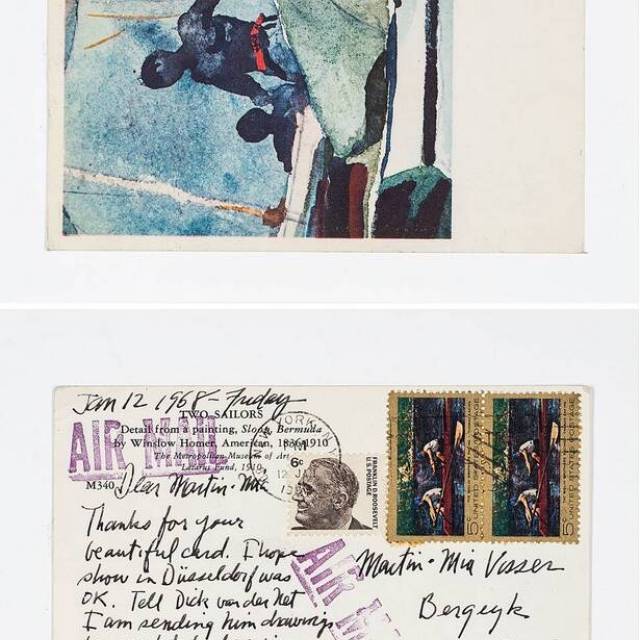 Jan 12 1968 - Friday
TWO SAILORS
Detail from a painting, Sloop, Bermuda
by Winslow Homer, American, 1836-1910
The Metropolitan Museum of Art
Lazarus Fund, 1910
M340
AIR MAIL
YORK
6c
U.S. POSTAGE
FRANKLIN D. ROOSEVELT
UNITED STATES
5c
5c
Dear Martin · Mia
Thanks for your
beautiful card. I hope
show in Düsseldorf was
OK. Tell Dick van der Net
I am sending him drawings
AIR
Martin · Mia Visser
Bergeyk